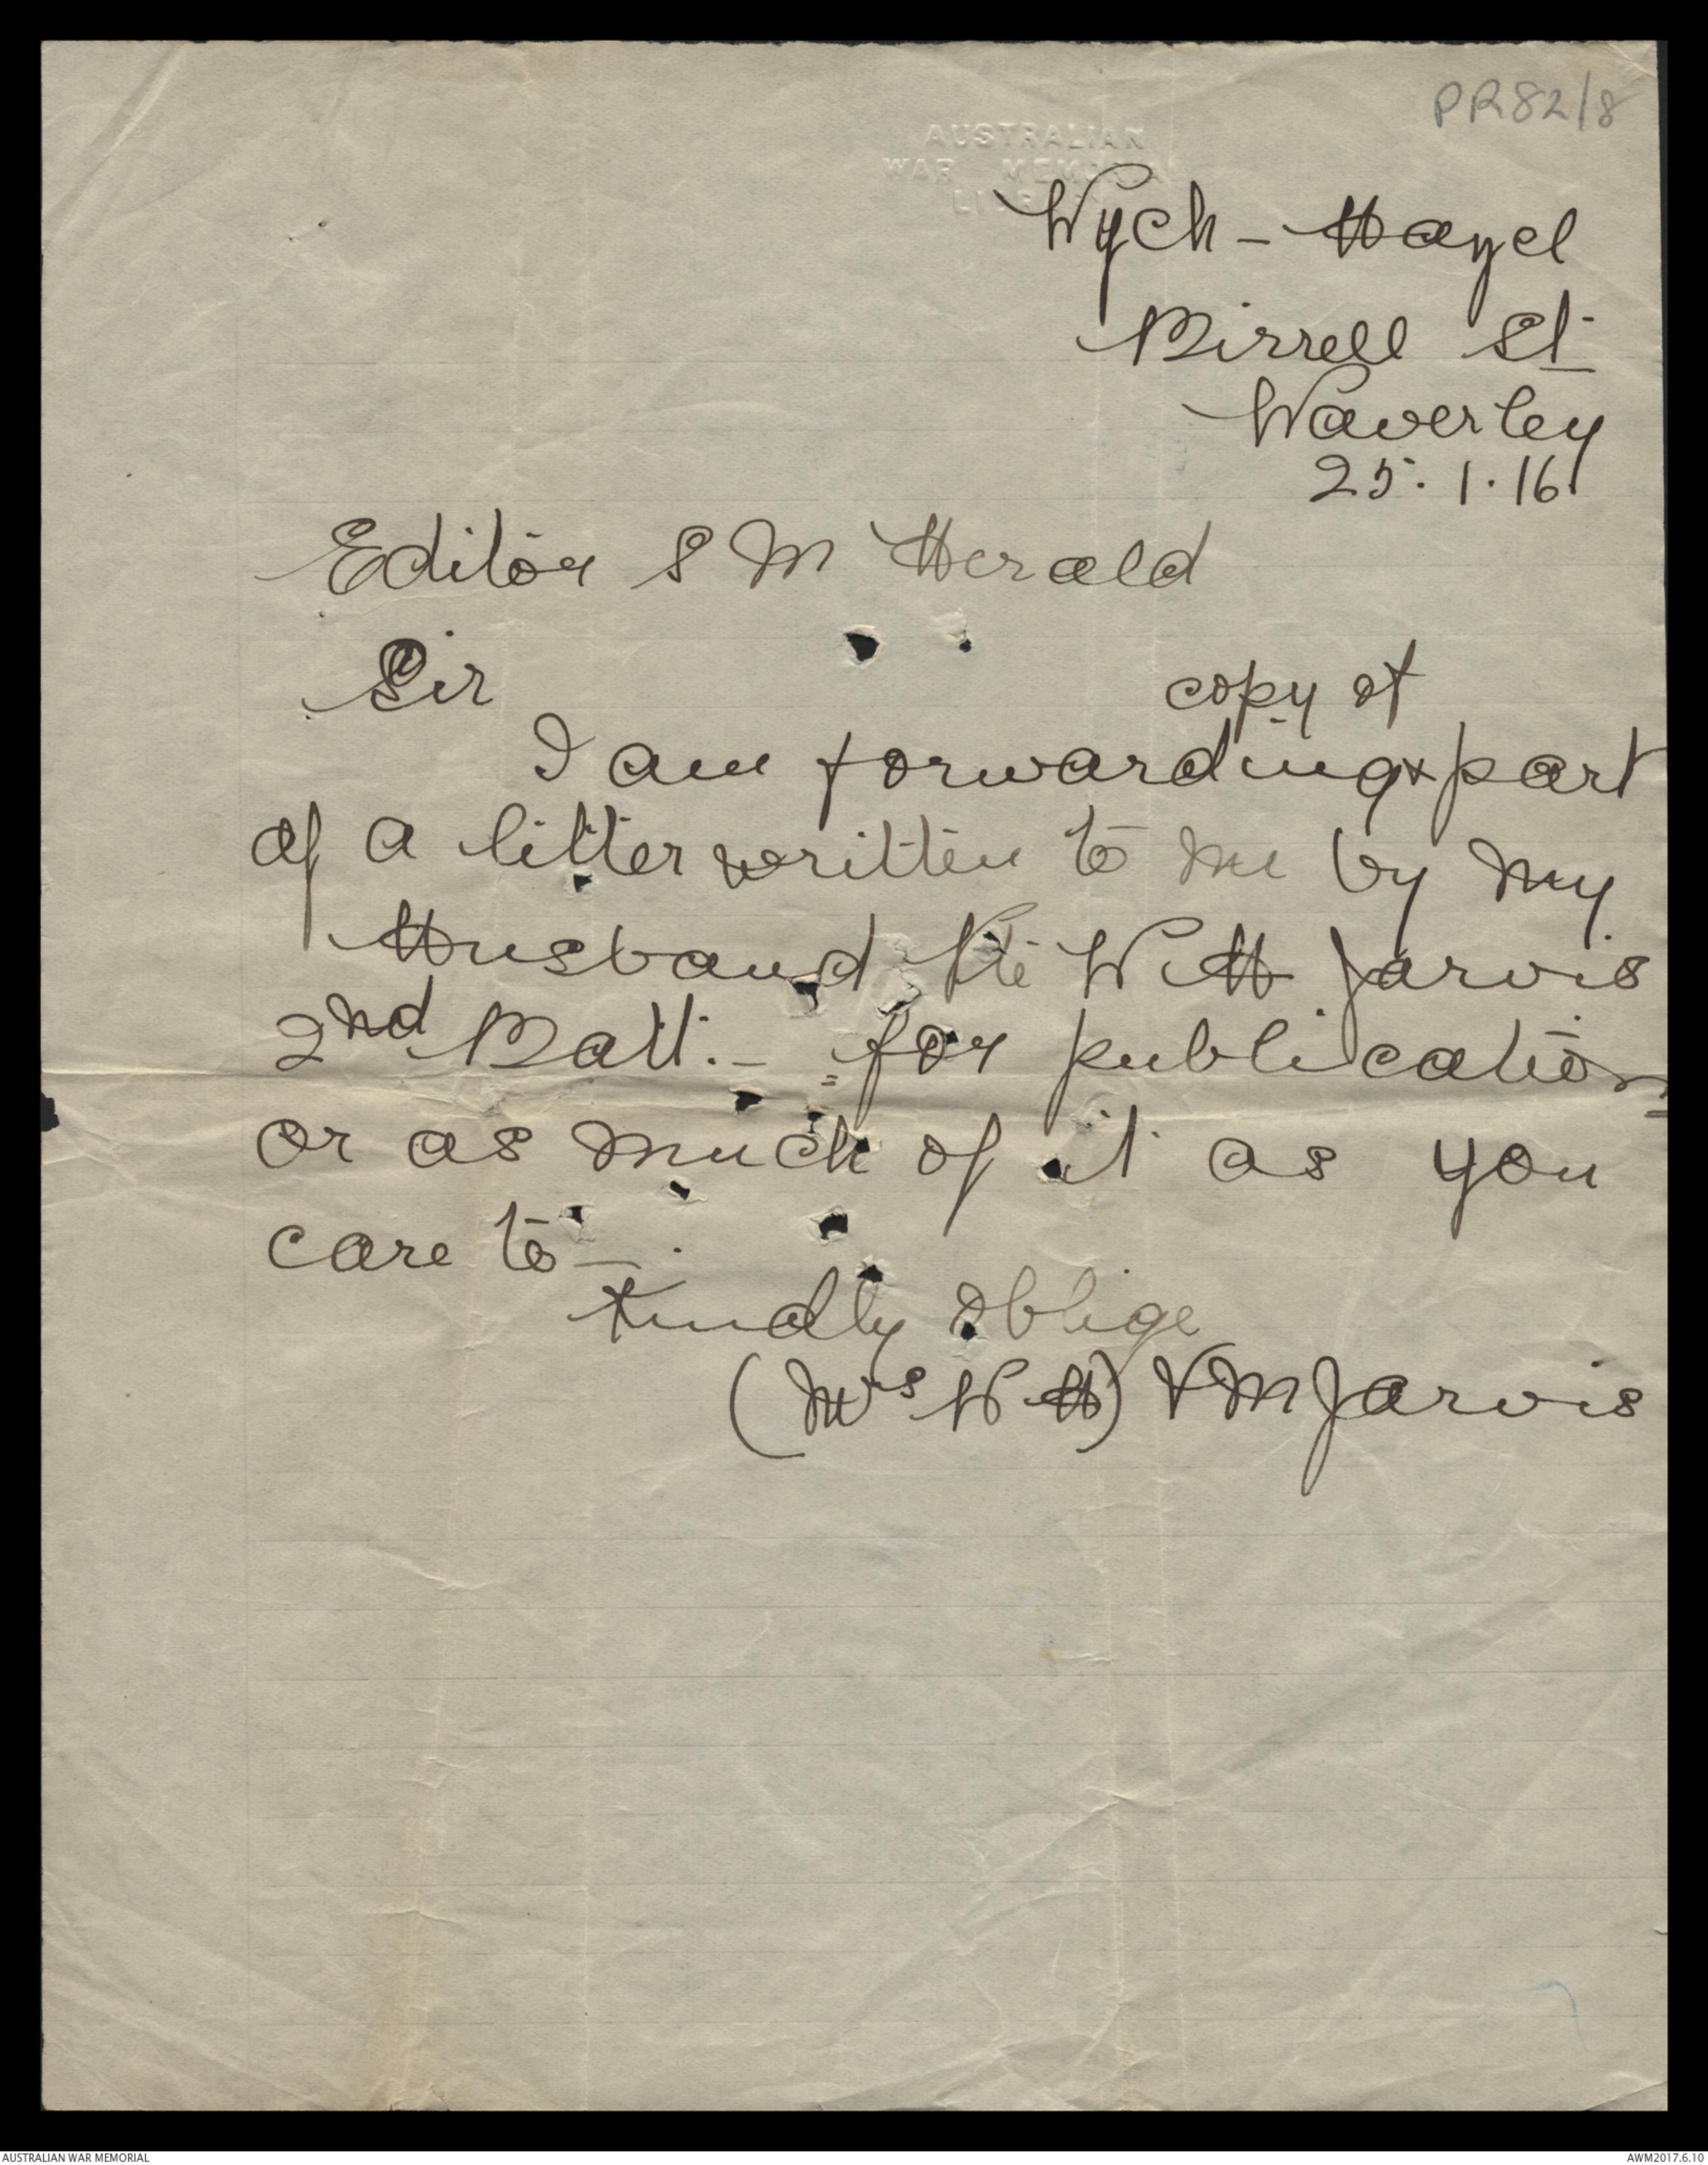 PR82/8
AUSTRALIAN
WAR MEMORIAL
Wych - Hazel
Birrell St
Waverley
25.1.16
Editor S M Herald
Sir
copy of
I am forwarding x part
of a letter written to me by my
Husband Pte W H Jarvis
2nd Batt. - for publication
or as much of it as you
care to -.
Kindly oblige
(Mrs W H) V M Jarvis
AUSTRALIAN WAR MEMORIAL
AWM2017.6.10